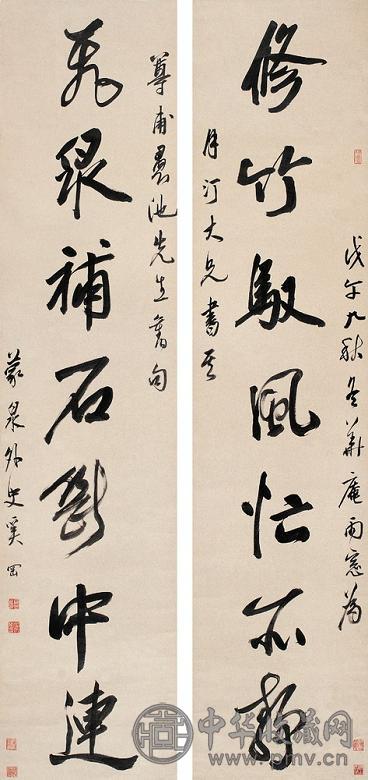 戊午九秋冬華庵雨窓為
修竹馭風忙亦靜
月汀大兄書其
尊甫墨池先生舊句
飛泉補石斷中連
蒙泉外史奚岡
中华收藏网
www.pmv.cn